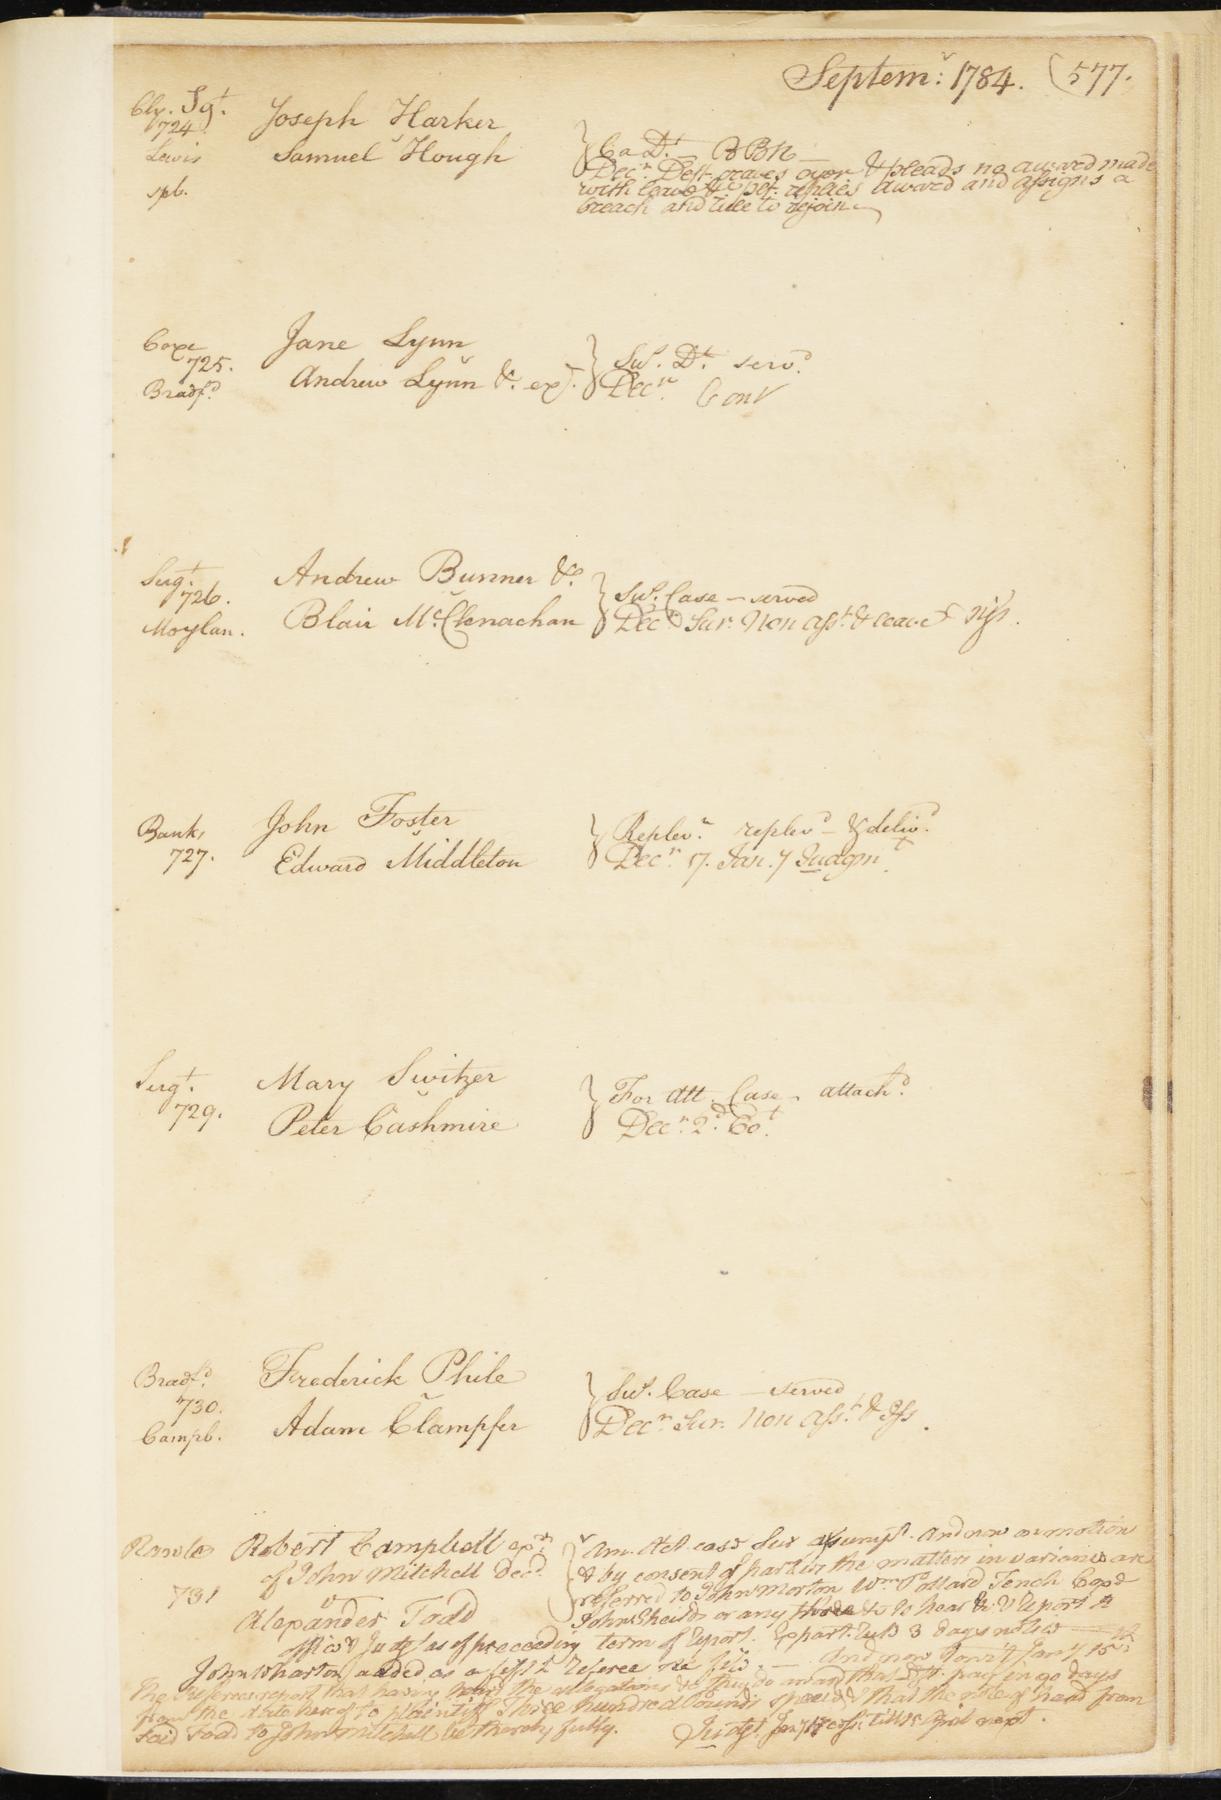 Septemr: 1784. (577.
Cly. Sgt.
724
Lewis
spb.
Joseph Harker
v
Samuel Hough
Ca Dt. BBN
Decr. Deft. craves oyer & pleads no award made
with leave &c plt. replies award and assigns a
breach and rule to rejoin
Coxe
725.
Bradfd.
Jane Lynn
v
Andrew Lynn &c. exr.
Sus. Dt. servd.
Decr. Cont
Sergt.
726.
Moylan.
Andrew Bunner &c
v
Blair McClenachan
Sus. Case – served
Decr. Sur. Non Asst. & leave &
Bank,
727.
John Foster
v
Edward Middleton
Replevn. replevd – & delivd.
Decr. 17. Jan. 7 Judgmt.
Sergt.
729.
Mary Switzer
v
Peter Cashmire
For Att. Case – attachd.
Decr. 2d. Cot.
Bradfd.
730.
Campb.
Frederick Phile
v
Adam Clampfer
Sus. Case – served
Decr. Sur. Non Asst. & Iss.
Rawle
731
Robert Campbell exr.
of John Mitchell decd.
v
Alexander Todd
Am. Act. case Sur assumpt. And now on motion
& by consent of parties the matters in variance are
referred to John Morton Wm Pollard Tench Coxe
John Sheilds or any three &c to hear &c & report
office Judgt as of preceeding term if report. Expart. rule 3 days notice
John Wharton added as a referee And now Jany 15th
The referees report that having heard the allegations &c they do award that Deft. pay in 90 days
from the date hereof to plaintiff Three hundred Pounds that the note of hand from
said Todd to John Mitchell be thereby fully. Judgt. Jany 17 till 15 April next.